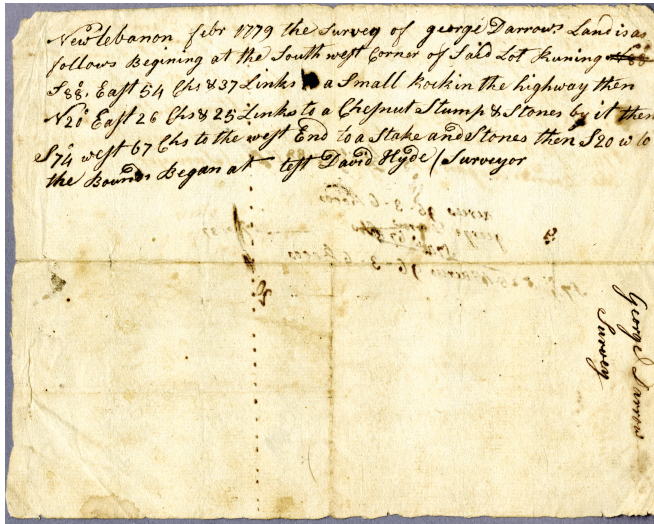 New lebanon febr 1779 the Survey of george Darrows Land is as
follows Begining at the South west Corner of Said Lot Runing
S88° East 54 Chs & 37 Links to a Small Rock in the highway then
N20° East 26 Chs & 25 Links to a Chesnut Stump & Stones by it then
S74° west 67 Chs to the west End to a Stake and Stones then S20 w to
the Bounds Began at test David Hyde / Surveyor
George Darrow
Survey